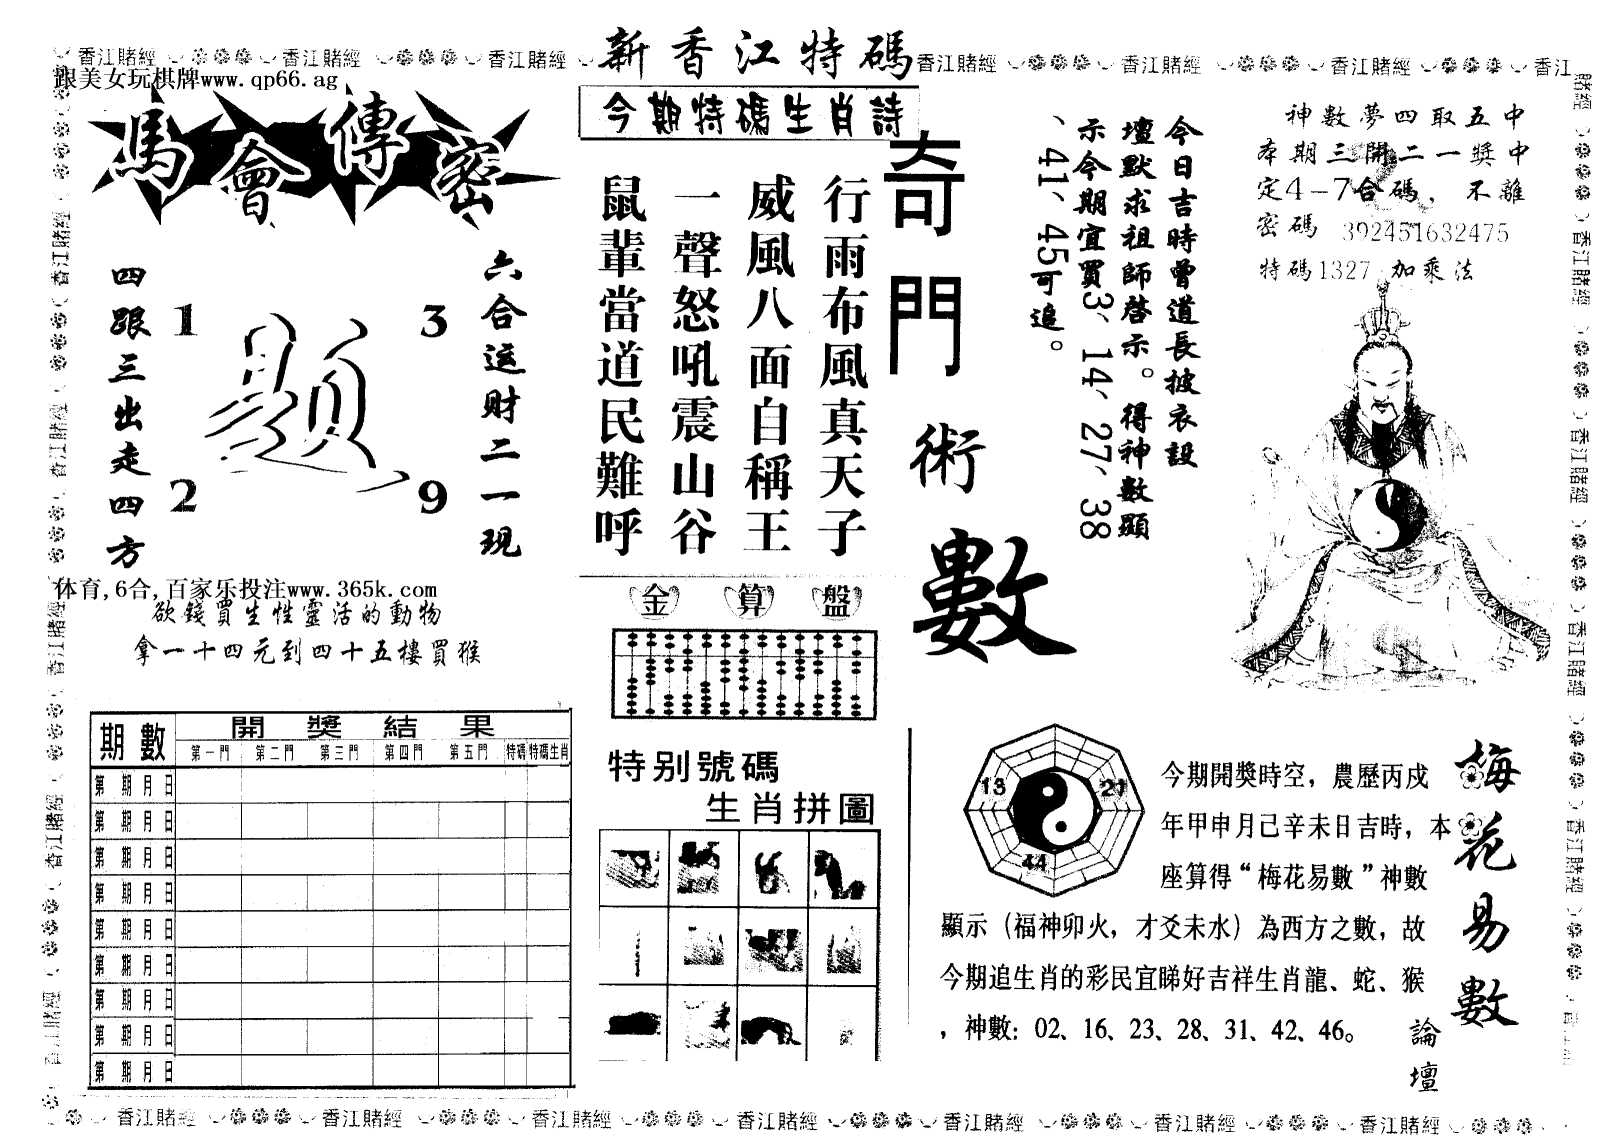 新香江特碼
香江賭經 香江賭經 香江賭經 香江賭經 香江賭經 香江賭經 香江
跟美女玩棋牌www.qp66.ag
馬會傳密
六合运财二一現
四跟三出走四方
1 3
2 9
体育,6合,百家乐投注www.365k.com
欲錢買生性靈活的動物
拿一十四元到四十五樓買猴
期數 開獎結果
第一門 第二門 第三門 第四門 第五門 特碼 特碼生肖
第 期 月 日
第 期 月 日
第 期 月 日
第 期 月 日
第 期 月 日
第 期 月 日
第 期 月 日
第 期 月 日
第 期 月 日
今期特碼生肖詩
行雨布風真天子
威風八面自稱王
一聲怒吼震山谷
鼠輩當道民難呼
金算盤
特别號碼
生肖拼圖
奇門術數
今日吉時曾道長披衣設
壇默求祖師啓示。得神數顯
示今期宜買3、14、27、38
、41、45可追。
神數夢四取五中
本期三開二一獎中
定4-7合碼，不離
密碼 392451632475
特碼1327 加乘法
13 21
44
梅花易數
論壇
今期開獎時空，農歷丙戌
年甲申月己辛未日吉時，本
座算得“梅花易數”神數
顯示（福神卯火，才爻未水）為西方之數，故
今期追生肖的彩民宜睇好吉祥生肖龍、蛇、猴
，神數：02、16、23、28、31、42、46。
香江賭經 香江賭經 香江賭經 香江賭經 香江賭經 香江賭經 香江賭經